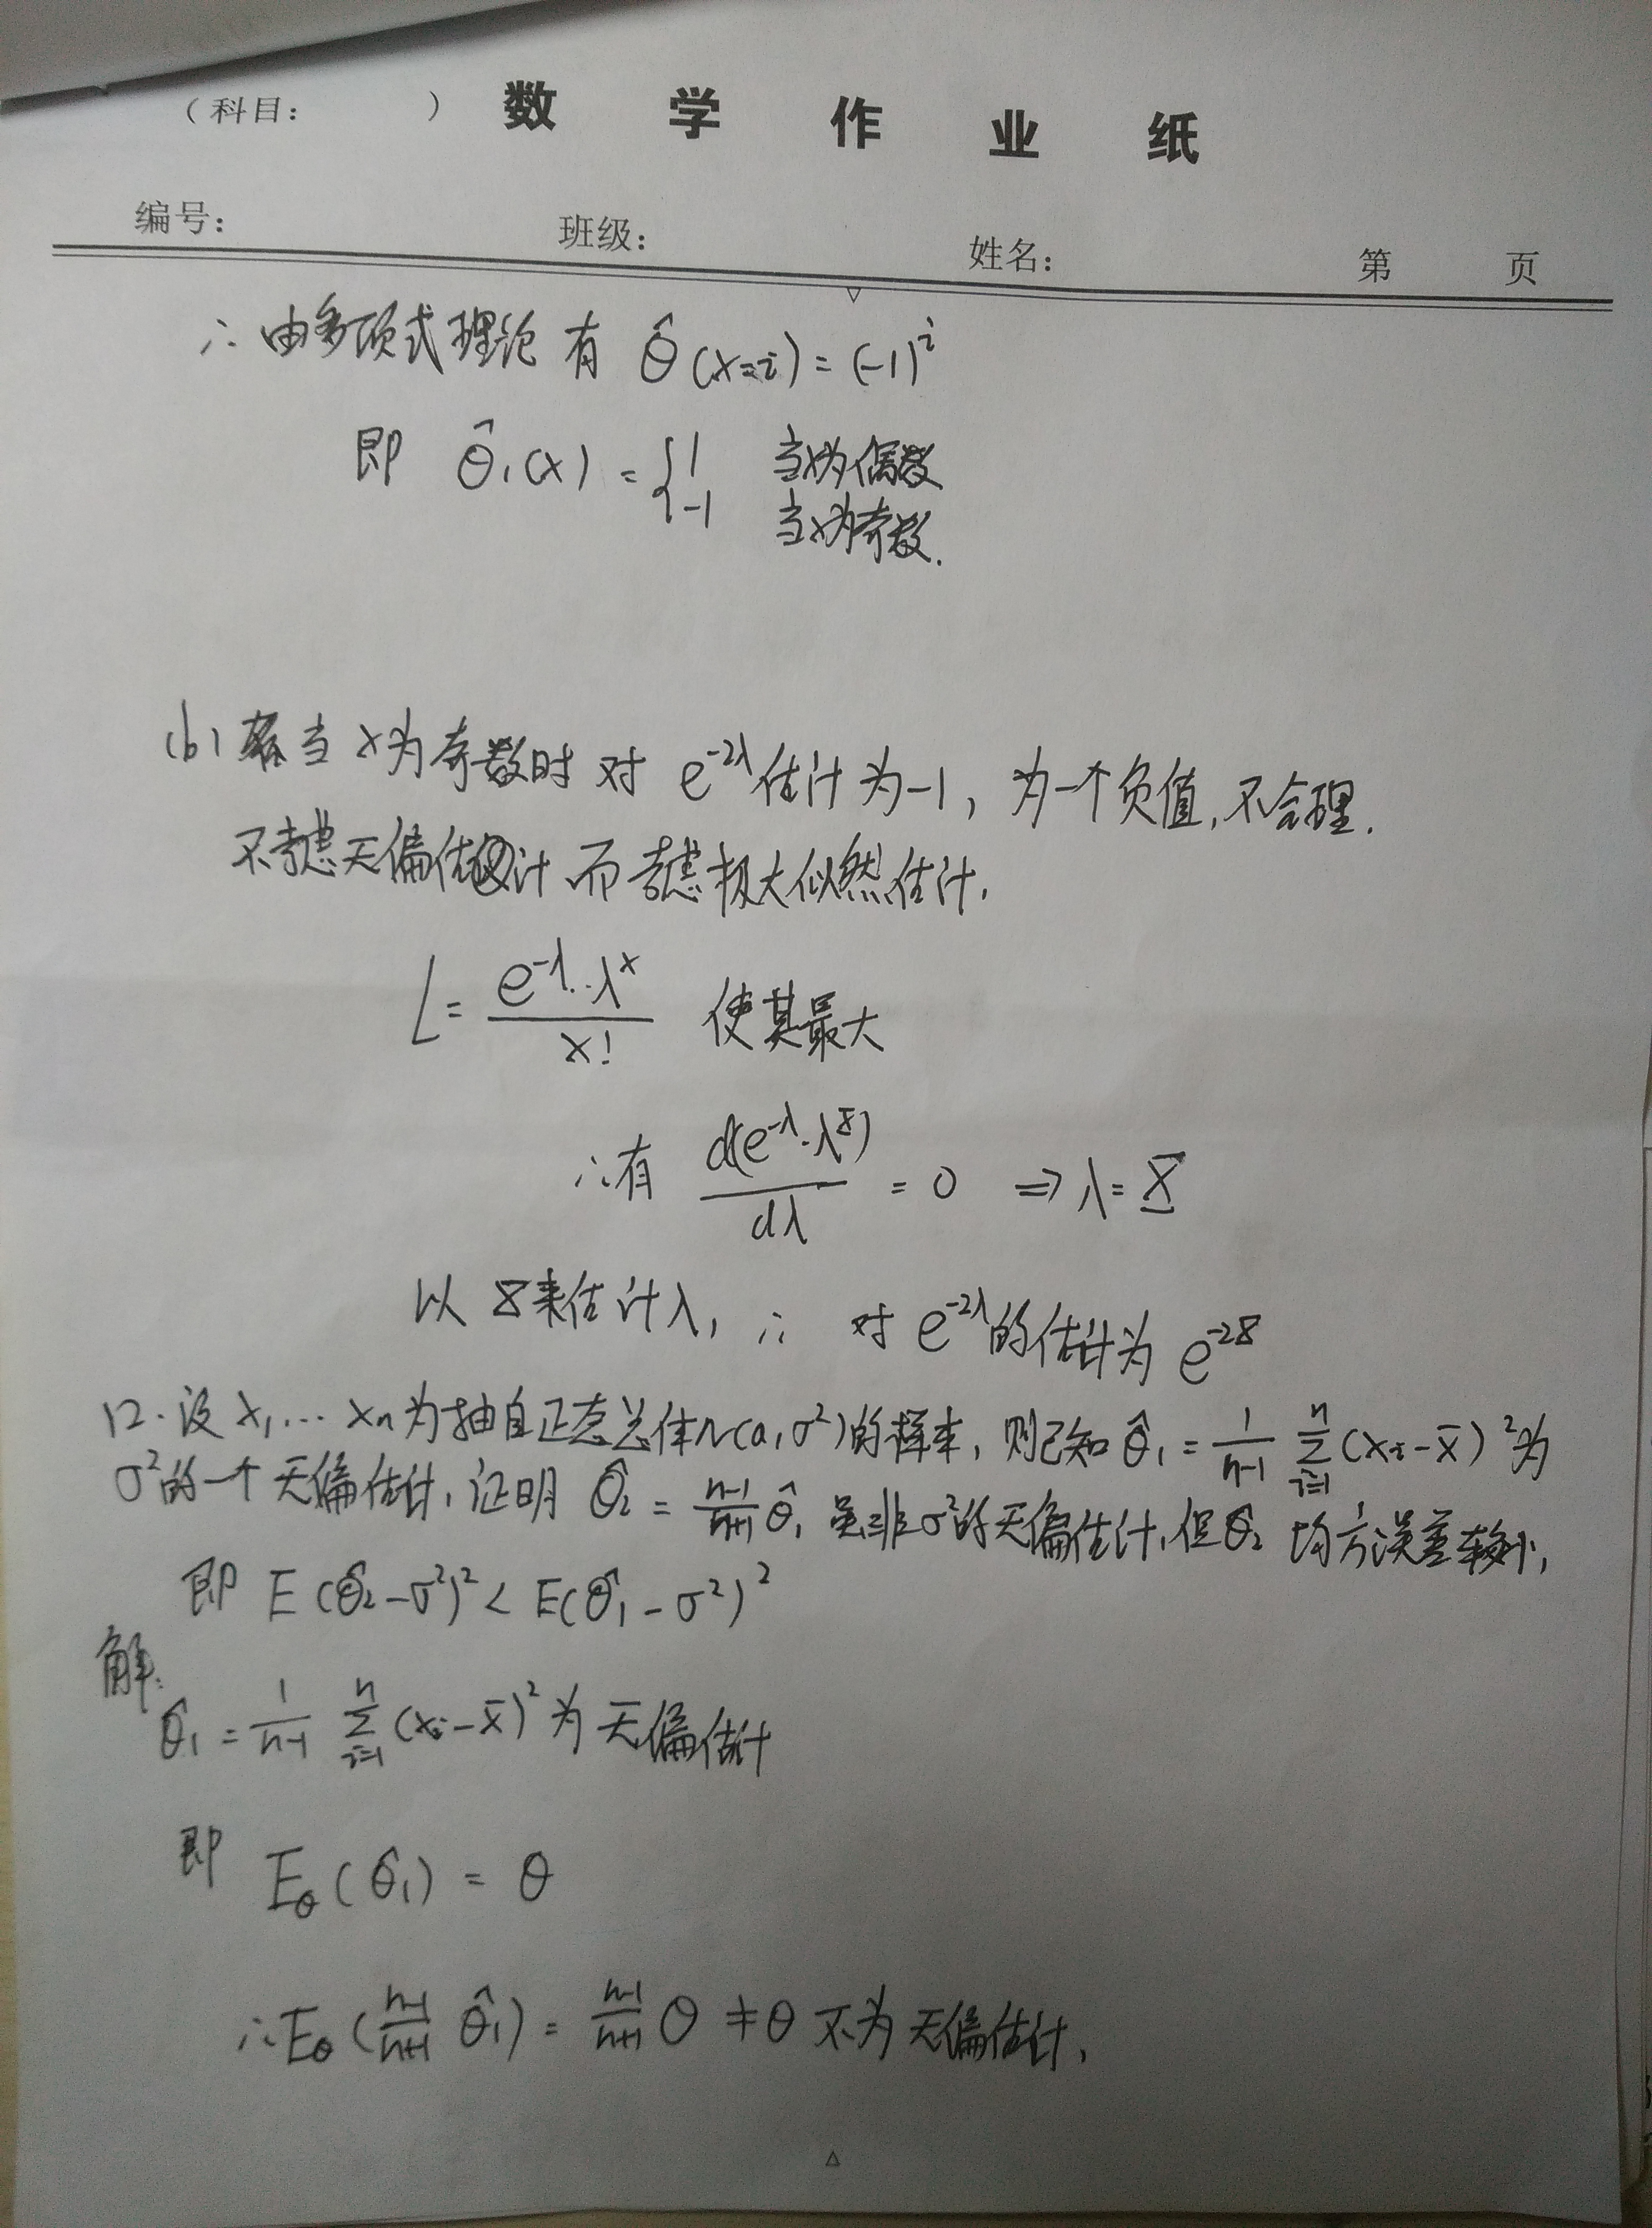 （科目：        ） 数 学 作 业 纸
编号：        班级：        姓名：        第    页
∴ 由多项式理论 有 θ̂(x=i) = (-1)^i
即 θ̂₁(x) = { 1 当x为偶数
-1 当x为奇数.
(b) 当 x为奇数时 对 e^{-2λ}估计为-1, 为一个负值, 不合理.
不考虑无偏估计 而考虑极大似然估计.
L = e^{-λ}·λ^x / x! 使其最大
∴有 d(e^{-λ}·λ^X)/dλ = 0 ⇒ λ = X
以 X来估计λ, ∴ 对 e^{-2λ}的估计为 e^{-2X}
12. 设 x₁,… xn为抽自正态总体N(a, σ²)的样本, 则已知 θ̂₁ = 1/(n-1) Σ_{i=1}^{n} (xi - x̄)² 为
σ²的一个无偏估计, 证明 θ̂₂ = (n-1)/(n+1) θ̂₁ 虽非σ²的无偏估计, 但θ̂₂ 均方误差较小,
即 E(θ̂₂-σ²)² < E(θ̂₁-σ²)²
解:
θ̂₁ = 1/(n-1) Σ_{i=1}^{n} (xi - x̄)² 为 无偏估计
即 E_θ(θ̂₁) = θ
∴ E_θ((n-1)/(n+1) θ̂₁) = (n-1)/(n+1) θ ≠ θ 不为 无偏估计.